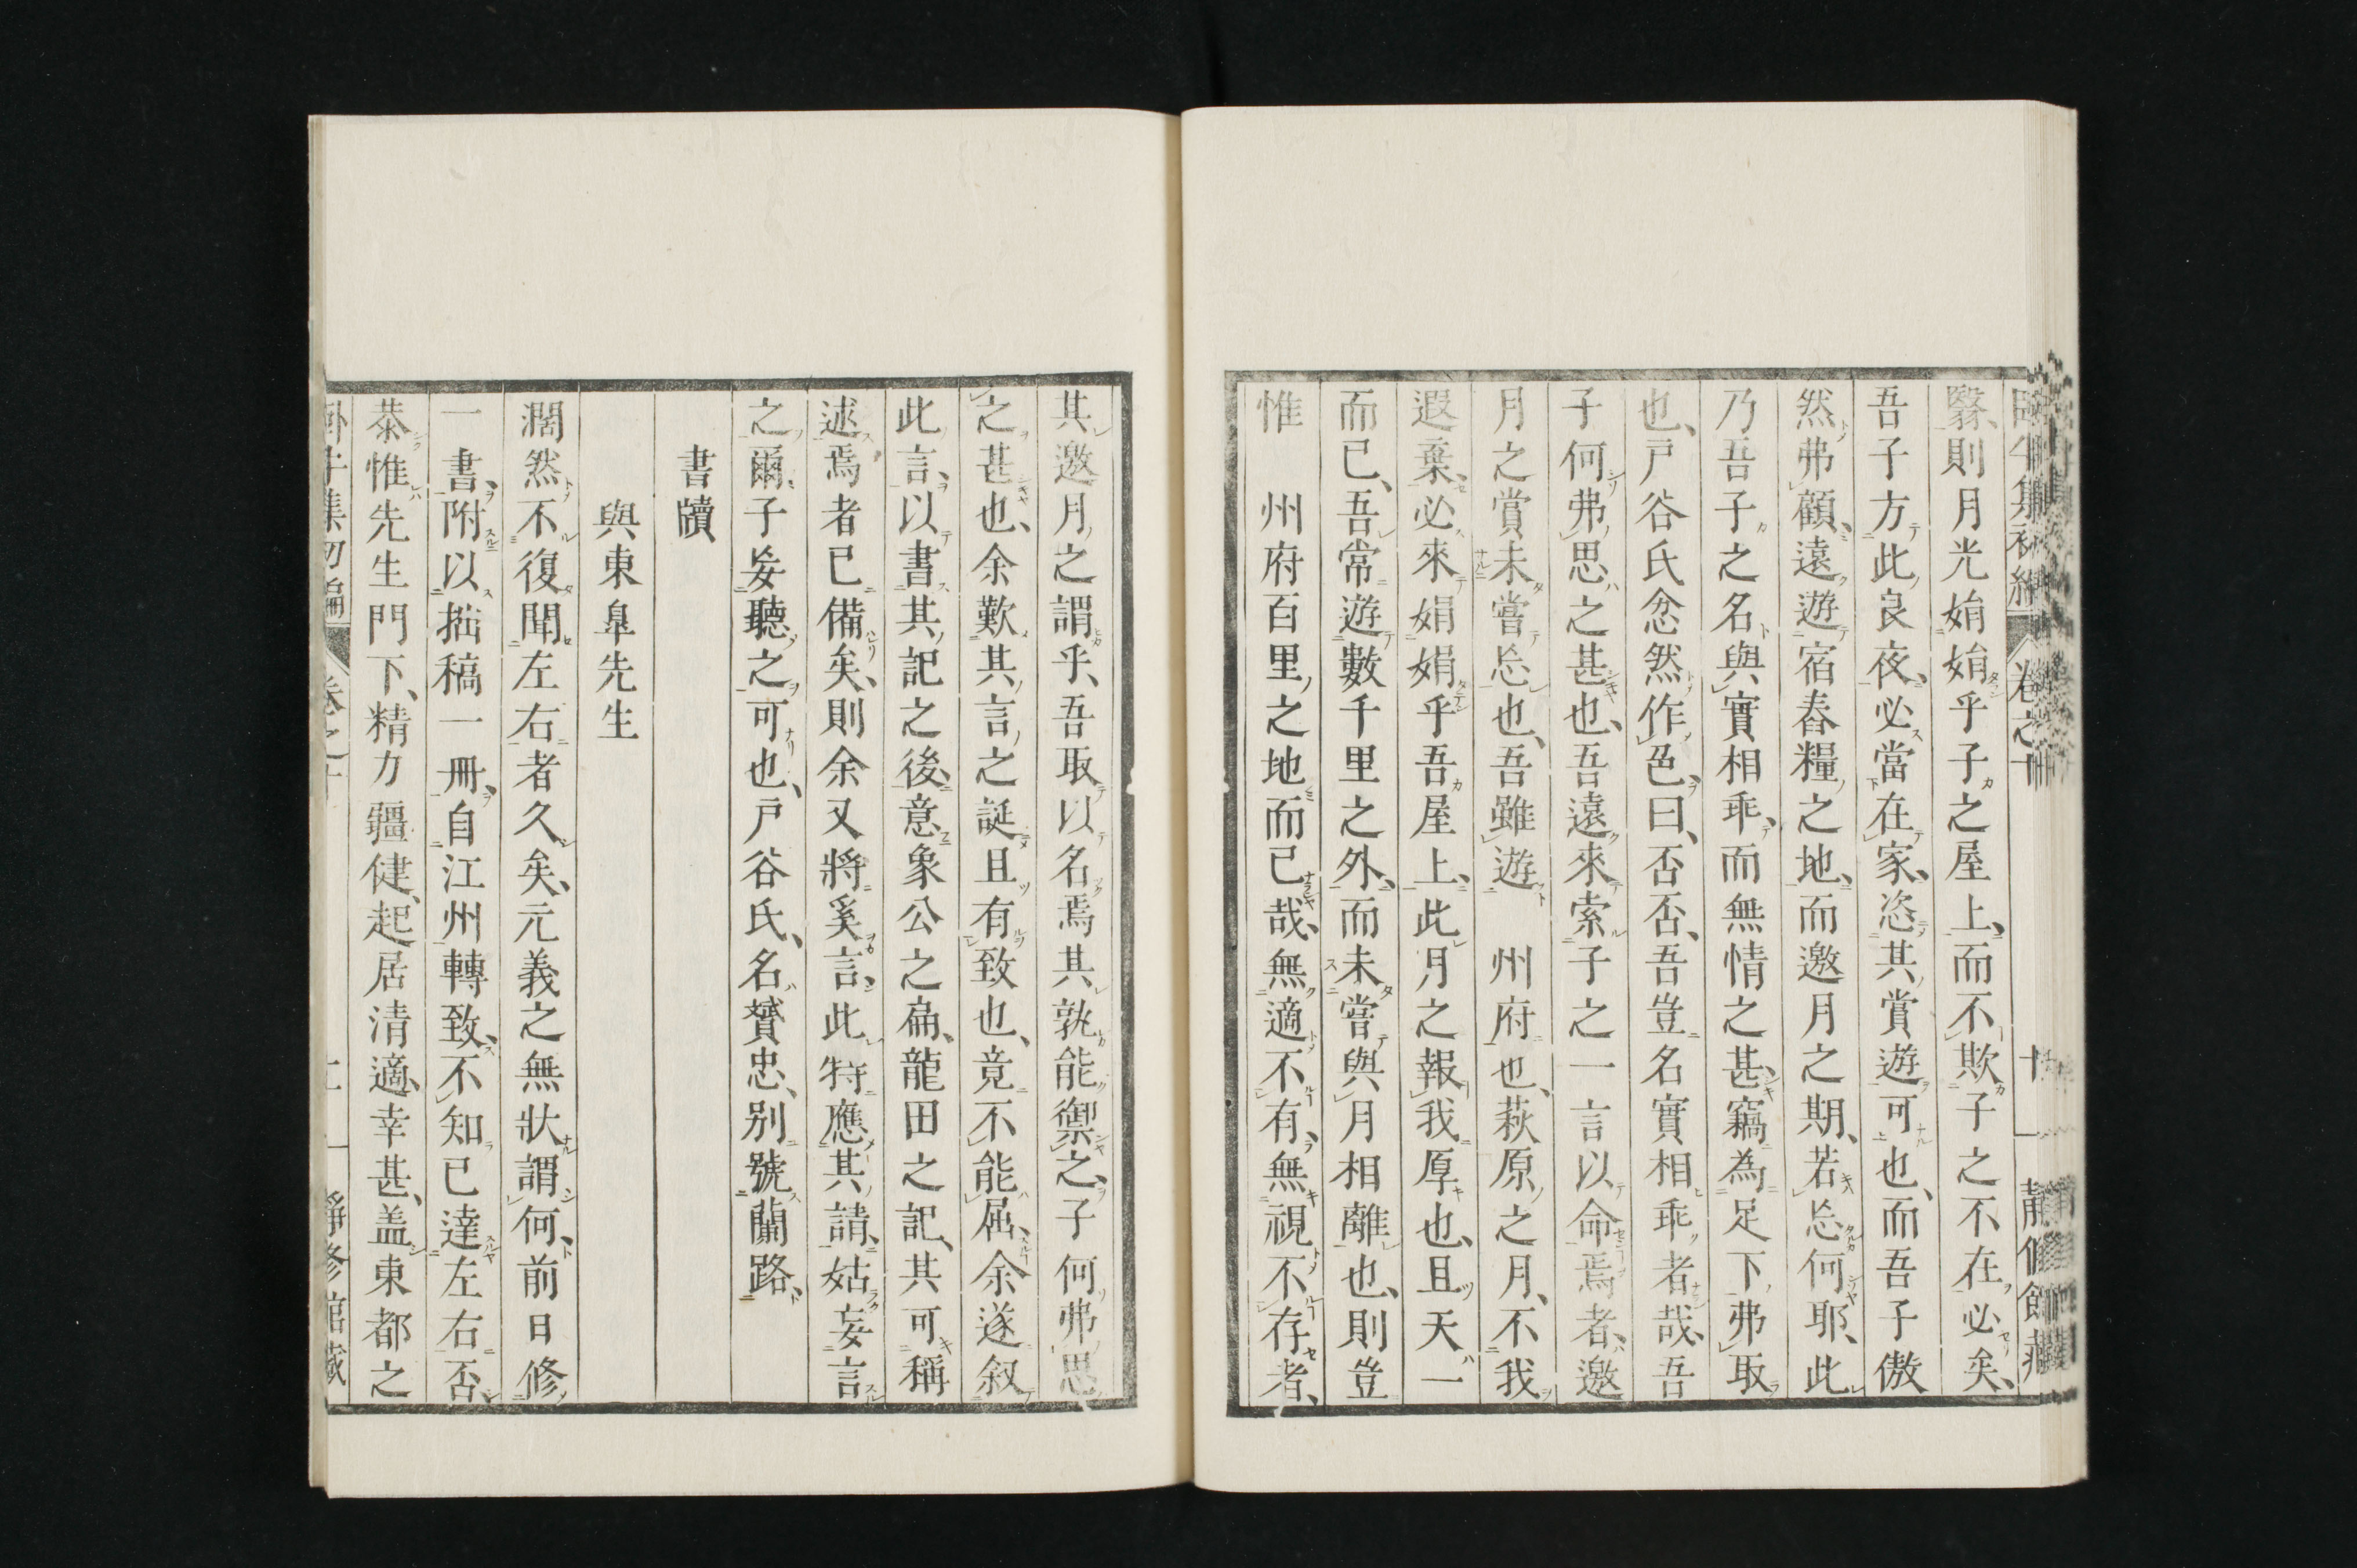 翳則月光娟娟乎子之屋上、而不欺子之不在必矣、
吾子方此良夜、必當在家、恣其賞遊可也、而吾子傲
然弗顧、遠遊宿舂糧之地、而邀月之期、若忘何耶、此
乃吾子之名與實相乖、而無情之甚、竊為足下弗取
也、戸谷氏忿然作色、曰、否否、吾豈名實相乖者哉、吾
子何弗思之甚也、吾遠來索子之一言以命焉者、邀
月之賞未嘗忘也、吾雖遊 州府也、萩原之月、不我
遐棄、必來娟娟乎吾屋上、此月之報我厚也、且天一
而已、吾常遊數千里之外、而未嘗與月相離也、則豈
惟 州府百里之地而已哉、無適不有、無視不存者、
其邀月之謂乎、吾取以名焉其孰能禦之、子何弗思
之甚也、余歎其言之誕且有致也、竟不能屈、余遂叙
此言、以書其記之後、意象公之扁、龍田之記、其可稱
述焉者已備矣、則余又將奚言、此特應其請、姑妄言
之爾、子妄聽之可也、戸谷氏、名贇忠、別號蘭路、
書牘
與東皐先生
濶然不復聞左右者久矣、元義之無狀謂何、前日修
一書、附以拙稿一冊、自江州轉致、不知已達左右否、
恭惟先生門下、精力疆健、起居清適、幸甚、盖東都之